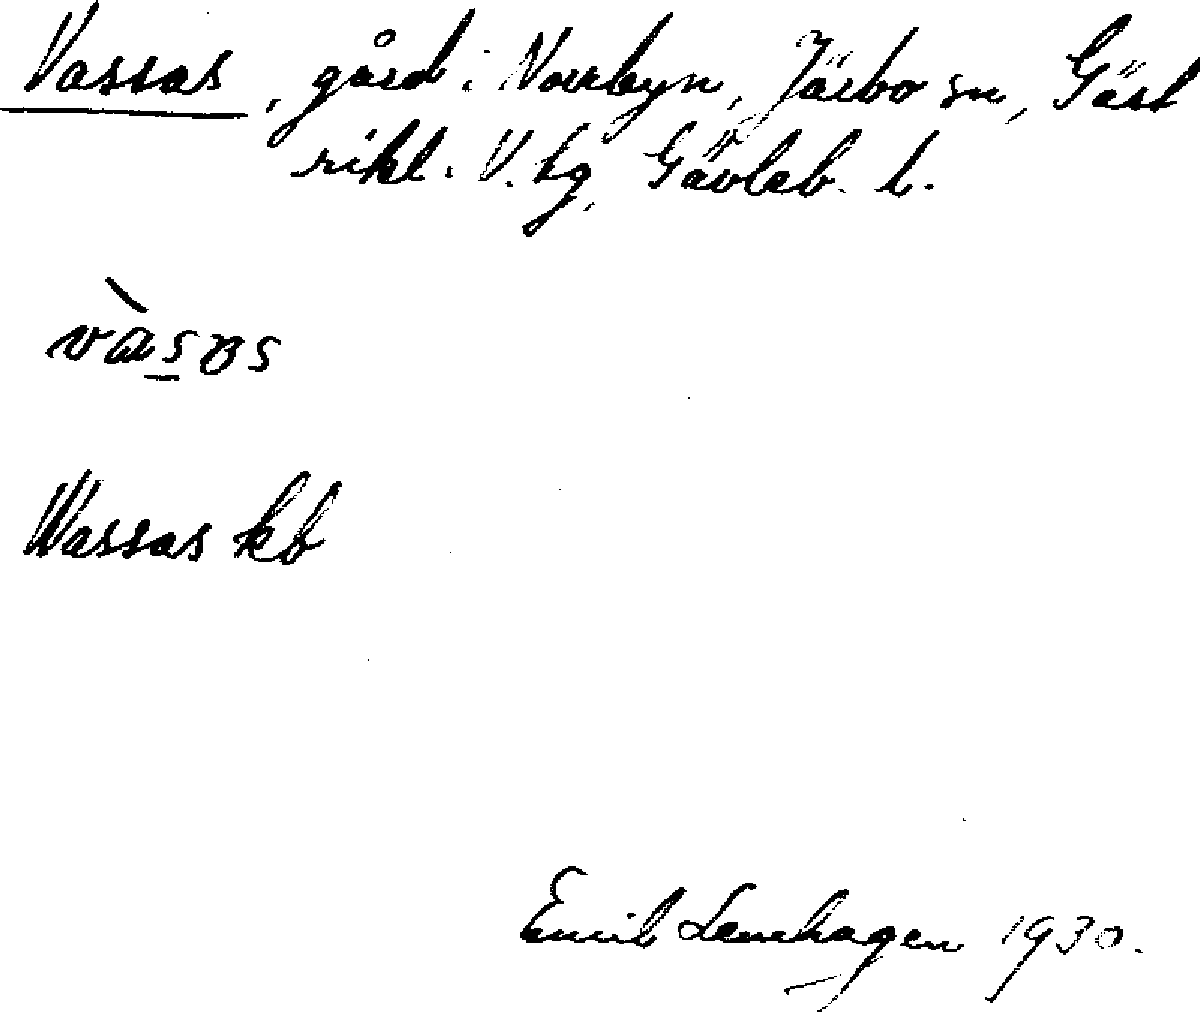 Vassas, gård i Norrbyn, Järbo sn, Gäst
rikl. V. hg, Gävleb. l.
vàsas
Wassas kb
Emil Lenhagen 1930.